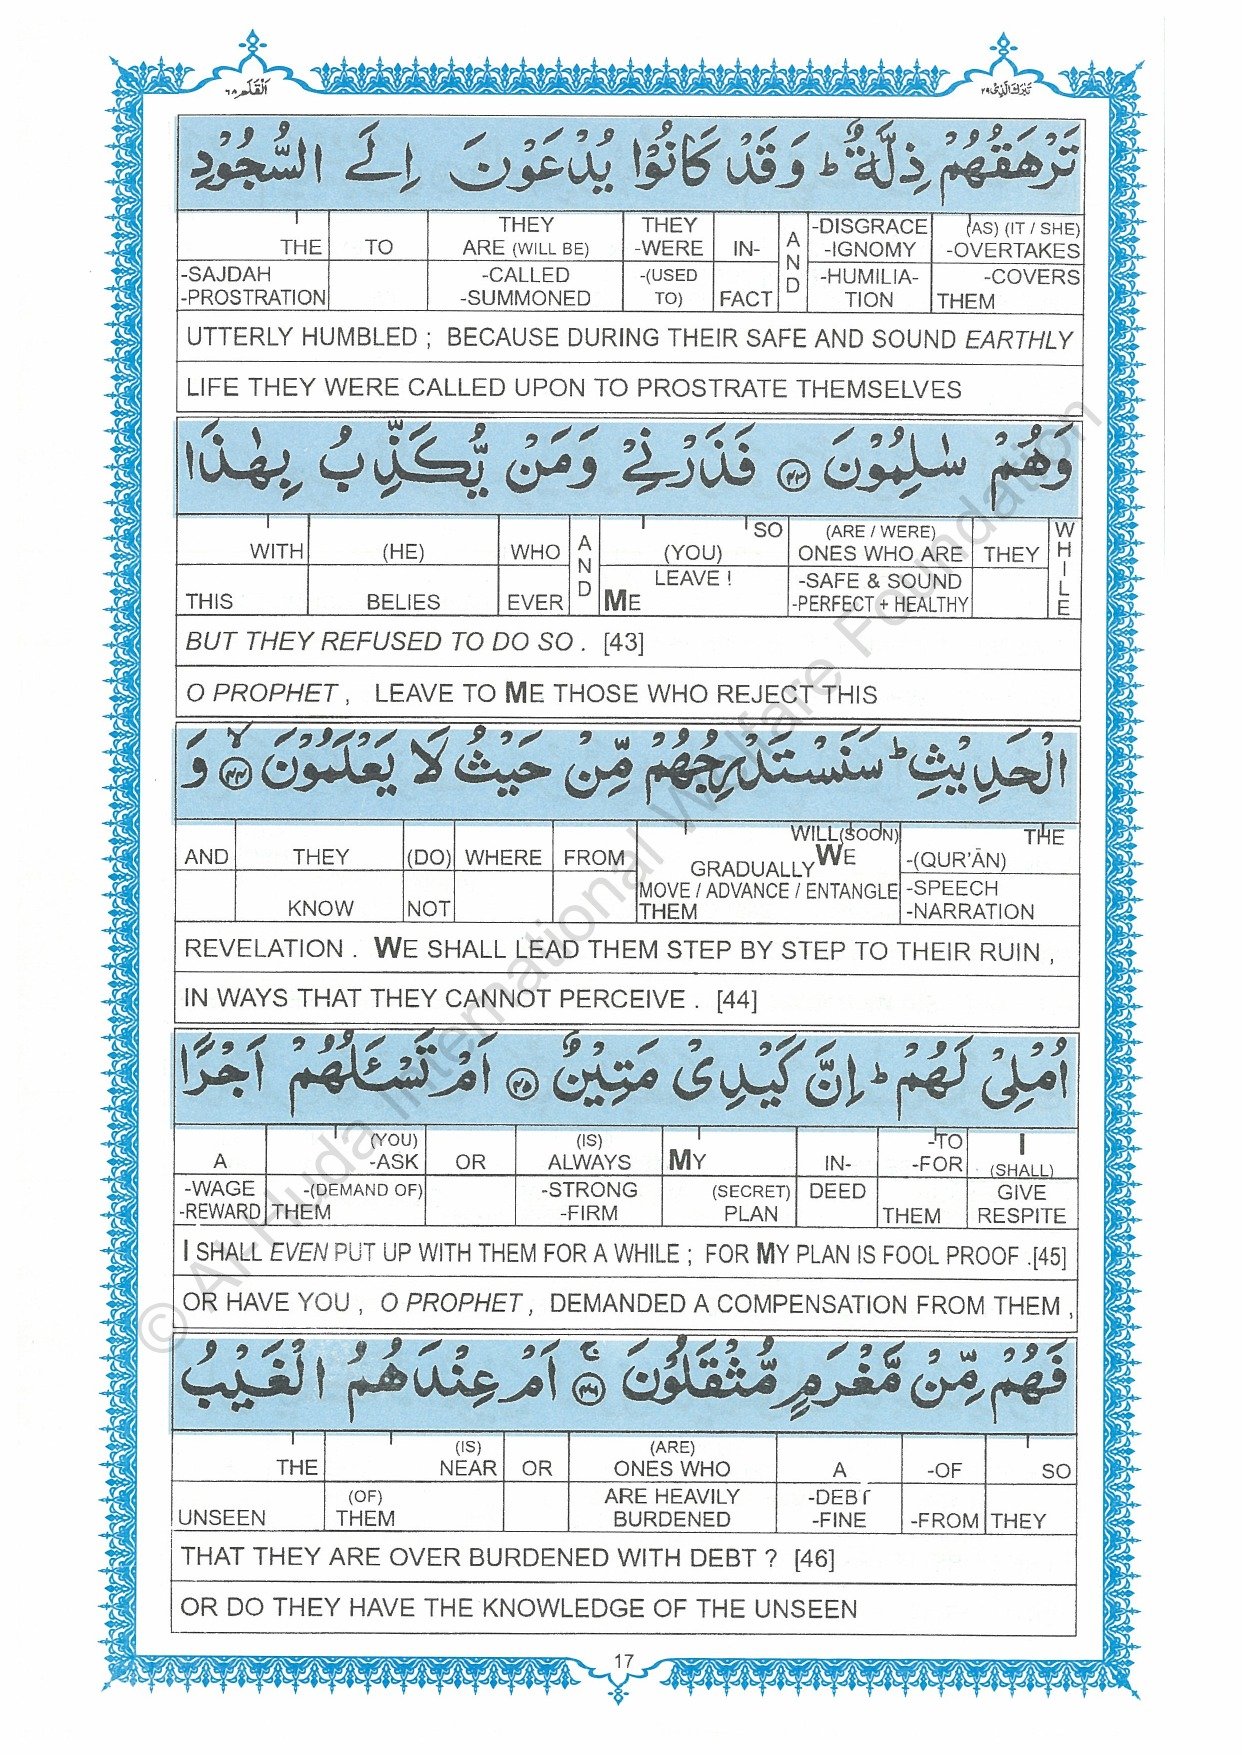 القلم ٦٨
تبرك الذى ٢٩
تَرْهَقُهُمْ ذِلَّةٌ ؕ وَ قَدْ كَانُوْا يُدْعَوْنَ اِلَى السُّجُوْدِ
THE TO THEY ARE (WILL BE) THEY -WERE IN- AND -DISGRACE -IGNOMY (AS) (IT / SHE) -OVERTAKES
-SAJDAH -PROSTRATION -CALLED -SUMMONED -(USED TO) FACT -HUMILIA-TION -COVERS THEM
UTTERLY HUMBLED ; BECAUSE DURING THEIR SAFE AND SOUND EARTHLY
LIFE THEY WERE CALLED UPON TO PROSTRATE THEMSELVES
وَ هُمْ سٰلِمُوْنَ ﴿۴۳﴾ فَذَرْنِيْ وَ مَنْ يُّكَذِّبُ بِهٰذَا
WITH (HE) WHO AND (YOU) SO (ARE / WERE) ONES WHO ARE THEY WHILE
THIS BELIES EVER ME LEAVE ! -SAFE & SOUND -PERFECT + HEALTHY
BUT THEY REFUSED TO DO SO . [43]
O PROPHET , LEAVE TO ME THOSE WHO REJECT THIS
الْحَدِيْثِ ؕ سَنَسْتَدْرِجُهُمْ مِّنْ حَيْثُ لَا يَعْلَمُوْنَ ﴿۴۴﴾ۙ وَ
AND THEY (DO) WHERE FROM WILL(SOON) WE GRADUALLY THE -(QUR'ĀN)
KNOW NOT MOVE / ADVANCE / ENTANGLE THEM -SPEECH -NARRATION
REVELATION . WE SHALL LEAD THEM STEP BY STEP TO THEIR RUIN ,
IN WAYS THAT THEY CANNOT PERCEIVE . [44]
اُمْلِيْ لَهُمْ ؕ اِنَّ كَيْدِىْ مَتِيْنٌ ﴿۴۵﴾ اَمْ تَسْـَٔلُهُمْ اَجْرًا
A (YOU) -ASK OR (IS) ALWAYS MY IN- -TO -FOR I (SHALL)
-WAGE -REWARD -(DEMAND OF) THEM -STRONG -FIRM (SECRET) PLAN DEED THEM GIVE RESPITE
I SHALL EVEN PUT UP WITH THEM FOR A WHILE ; FOR MY PLAN IS FOOL PROOF .[45]
OR HAVE YOU , O PROPHET , DEMANDED A COMPENSATION FROM THEM ,
فَهُمْ مِّنْ مَّغْرَمٍ مُّثْقَلُوْنَ ﴿۴۶﴾ۚ اَمْ عِنْدَهُمُ الْغَيْبُ
THE (IS) NEAR OR (ARE) ONES WHO A -OF SO
UNSEEN (OF) THEM ARE HEAVILY BURDENED -DEBT -FINE -FROM THEY
THAT THEY ARE OVER BURDENED WITH DEBT ? [46]
OR DO THEY HAVE THE KNOWLEDGE OF THE UNSEEN
17
© Al-Huda International Welfare Foundation